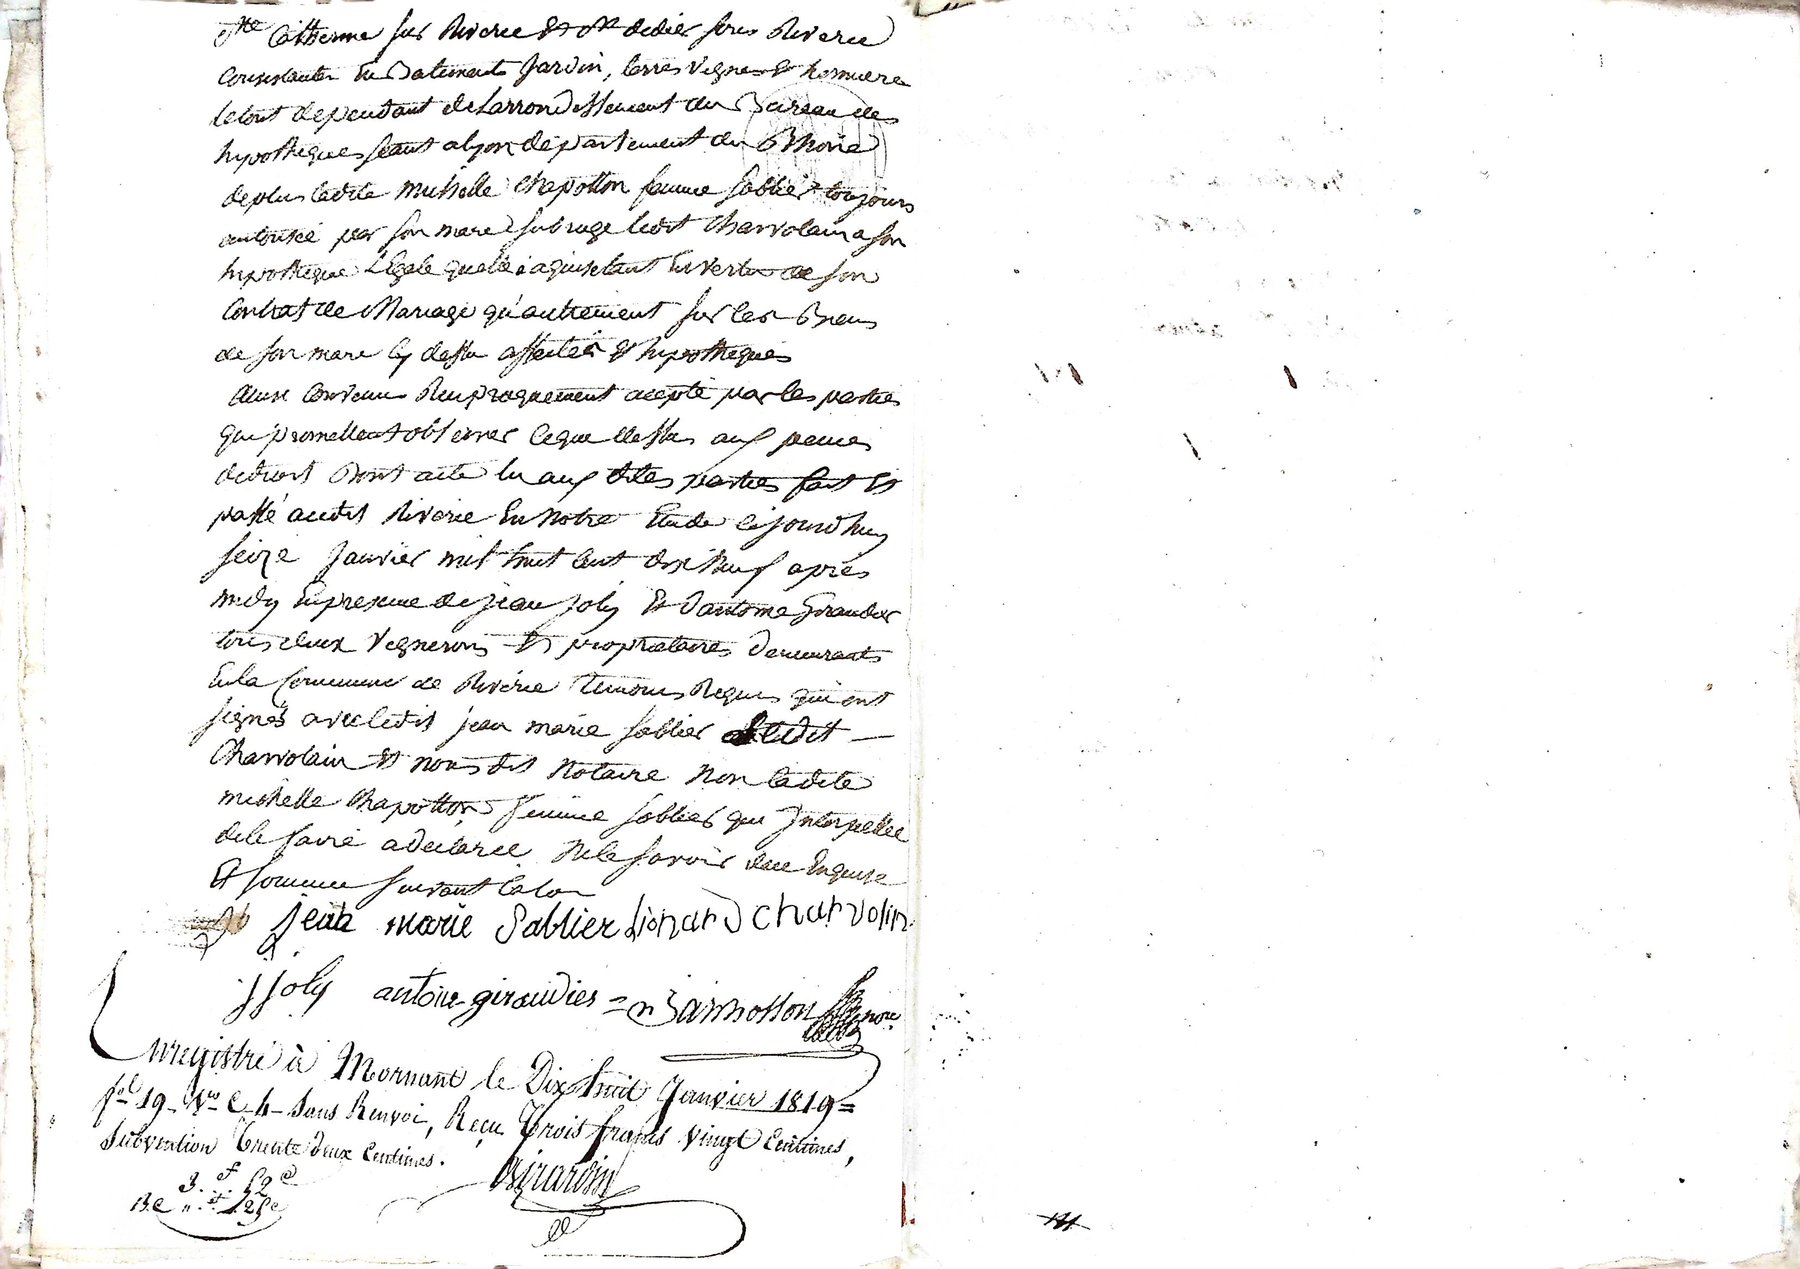 Ste Catherine sur Riverie et St didier sous Riverie
Consistantes En Batiments Jardin, terres vignes & 
le tout dependant de Larrondissement du Bureau des
hypotheques séant a lyon département du Rhône
de plus ladite michelle Chapotton femme Sablier toujours
autorisée par son mare subroge ledit Charvolain a son
hipotheque Légale quelle a Envertu de son
Contrat de Mariage qu'autrement sur les Biens
de son mare Cy dessu affectés & hipothequés
Ainsi Convenu Reciproquement acepté par les parties
qui promettent observer ceque dessus aux peines
dedroit Dont acte lu aux dites parties fait Et
passé audit Riverie En notre Etude Cejourdhuy
seize Janvier mil huit Cent dix neuf apres
midy Enpresence de jean joly Et Dantoine Giraudier
tous deux Vignerons Et propriétaires Demeurants
Enla Commune de Riverie temoins Requis qui ont
signés avec ledit jean marie Sablier & ledit
Charvolain Et nous dit Notaire Non ladite
michelle Chapotton femme Sablier qui Interpellée
dele faire a déclarée Nele savoir de ce Enquise
Et sommée suivant la loi
jean marie Sablier Lionard charvolin
jjoly antoine giraudier = nre
Enregistré à Mornant le Dix huit Janvier 1819 =
fol 19 Vo C 4 Sans Renvoi, Reçu Trois francs vingt Centimes,
Subvention Trente deux Centimes.
Girardin